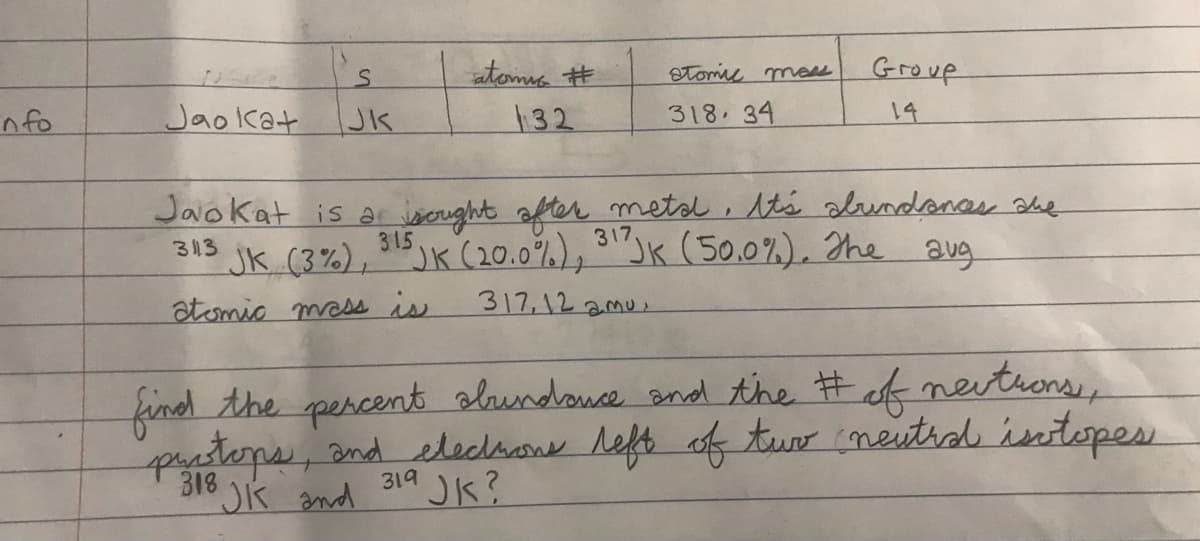 S atomic # atomic mass Group
nfo Jaokat JK 132 318.34 14
Jaokat is a sought after metal. Its abundances are
313 JK (3%), 315 JK (20.0%), 317 JK (50.0%). The avg
atomic mass is 317.12 amu.
find the percent abundance and the # of neutrons,
and electrons left of two neutral isotopes
318 JK and 319 JK?